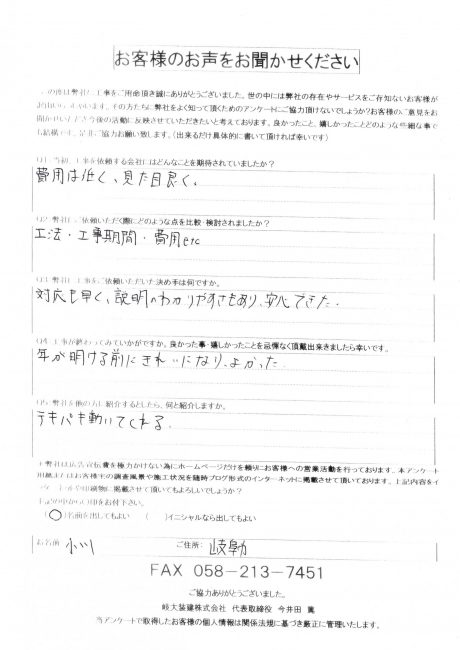 お客様のお声をお聞かせください
この度は弊社に工事をご用命頂き誠にありがとうございました。世の中には弊社の存在やサービスをご存知ないお客様が
よく知って頂くためのアンケートにご協力頂けないでしょうか?お客様のご意見をお
今後の活動に反映させていただきたいと考えております。良かったこと、嬉しかったことどのような些細な事で
も結構です。是非ご協力お願い致します。(出来るだけ具体的に書いて頂ければ幸いです)
Q1.当初、工事を依頼する会社にはどんなことを期待されていましたか?
費用は低く、見た目良く、
Q2.弊社にご依頼いただく際にどのような点を比較・検討されましたか?
工法・工事期間・費用etc
Q3.弊社に工事をご依頼いただいた決め手は何ですか。
対応も早く、説明のわかりやすさもあり、安心できた.
Q4.工事が終わってみていかがですか。良かった事・嬉しかったことを忌憚なく頂戴出来きましたら幸いです。
年が明ける前にきれいになり、よかった.
Q5.弊社を他の方に紹介するとしたら、何と紹介しますか。
テキパキ動いてくれる.
弊社は広告宣伝費を極力かけない為にホームページだけを頼りにお客様への営業活動を行っております。本アンケート
用紙ではお客様宅の調査風景や施工状況を随時ブログ形式のインターネットに掲載させて頂いております。上記内容をイ
ンターネットや印刷物に掲載させて頂いてもよろしいでしょうか?
下記の中から〇印をお付下さい。
(〇)名前を出してもよい ( )イニシャルなら出してもよい
お名前 小川 ご住所: 岐阜
FAX 058-213-7451
ご協力ありがとうございました。
岐大装建株式会社 代表取締役 今井田 篤
当アンケートで取得したお客様の個人情報は関係法規に基づき厳正に管理いたします。